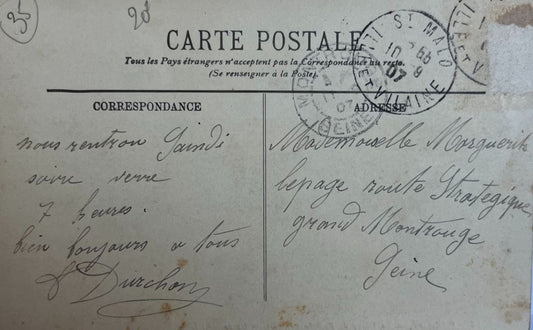 35
20
CARTE POSTALE
Tous les Pays étrangers n'acceptent pas la Correspondance au recto.
(Se renseigner à la Poste).
ST MALO
ILLE ET VILAINE
07
SEINE
07
CORRESPONDANCE
nous rentron Saindi
soire verre
7 heures.
bien toujours a tous
Durchon
ADRESSE
Mademoiselle Marguerite
lepage route Strategique
grand Montrouge
Seine